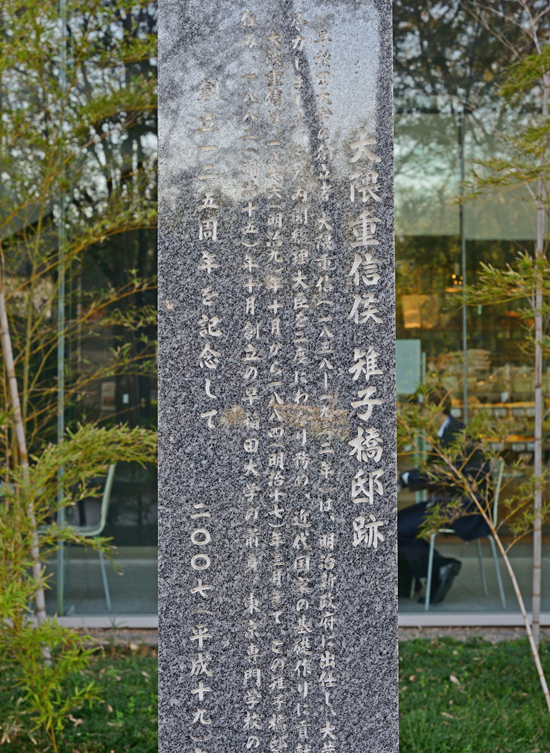 大隈重信侯 雉子橋邸跡
早稲田大学の創立者 大隈重信（一八三八ー一九二二年）は、明治新政府に出仕し、大
尽力しま　　内閣総理大臣を二度にわたり務め、近代国家の基礎作りに貢献
大隈重信が一八七六（明治九）年十月から一八八四（明治十七）年三月まで、この雉子橋邸
一八八二（明治十五）年十月創立の早稲田大学の前身、東京専門学校の
創立一二五周年を記念して 二〇〇七（平成十九）